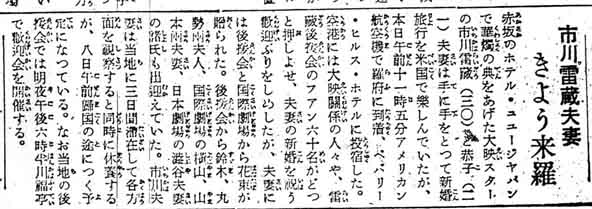 市川雷蔵夫妻
きよう来羅
赤坂のホテル・ニュージャパン
で華燭の典をあげた大映スター
の市川雷蔵(三〇)と恭子(二
一)夫妻は手に手をとつて新婚
旅行を米国で楽しんでいたが、
本日午前十一時五分アメリカン
航空機で羅府に到着、ベバリー
・ヒルス・ホテルに投宿した。
空港には大映関係の人々や、雷
蔵後援会のフアン六十名がどつ
と押しよせ、夫妻の新婚を祝う
歓迎ぶりをしめしたが、夫妻に
は後援会と国際劇場から花束が
贈られた。後援会から鈴木、丸
勢両夫人、国際劇場の横山、山
本両夫妻、日本劇場の澁谷夫妻
の諸氏も出迎えていた。市川夫
妻は当地に三日間滞在して各方
面を視察すると同時に休養する
が、八日午前帰国の途につく予
定になつている。なお当地の後
援会では明夜午後六時半川福亭
で歓迎会を開催する。